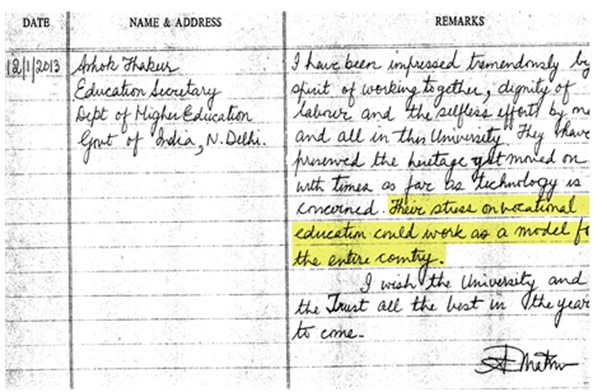 DATE NAME & ADDRESS REMARKS
12/1/2013 Ashok Thakur
Education Secretary
Dept of Higher Education
Govt of India, N. Delhi.
I have been impressed tremendously by
spirit of working together, dignity of
labour and the selfless efforts by
and all in this University. They have
preserved the heritage yet moved on
with times as far as technology is
concerned. Their stress on vocational
education could work as a model
the entire country.
I wish the University and
the Trust all the best in the year
to come.